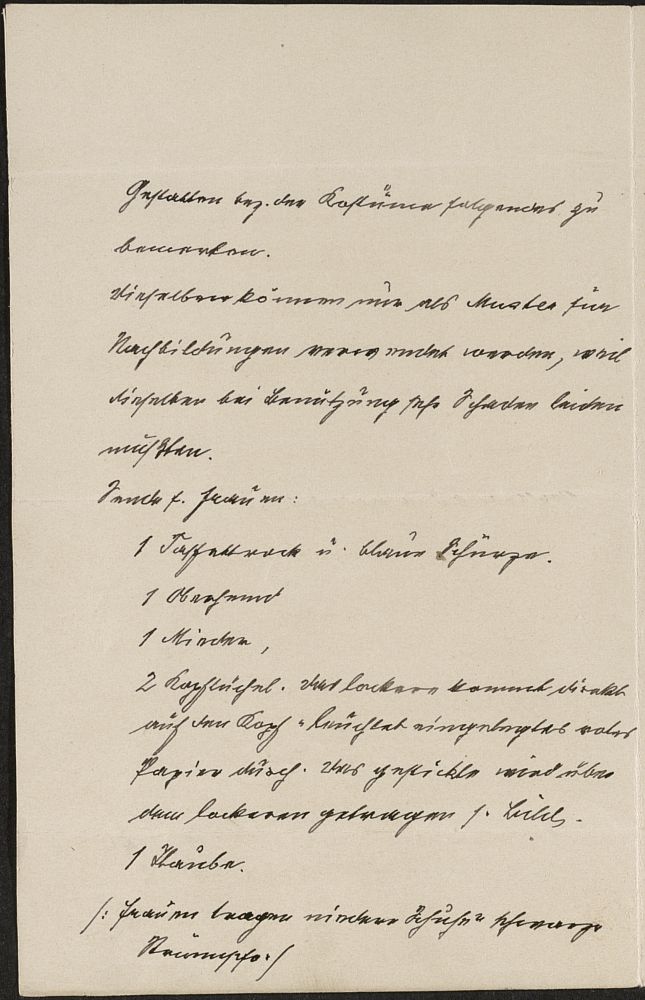 Gestatten bez. der Kostüme folgendes zu
bemerken.
Dieselben können nur als Muster für
Nachbildungen verwendet werden, weil
dieselben bei Benützung sehr Schaden leiden
müßten.
Sende f. Frauen:
1 Taffettrock u. blaue Schürze.
1 Oberhemd
1 Mieder,
2 Kopftüchel. Das lockere kommt direkt
auf den Kopf u leuchtet eingelegtes rotes
Papier durch. Das gestickte wird über
dem lockeren getragen s. Bild.
1 Haube.
/: Frauen tragen niedere Schuhe u schwarze
Strümpfe :/